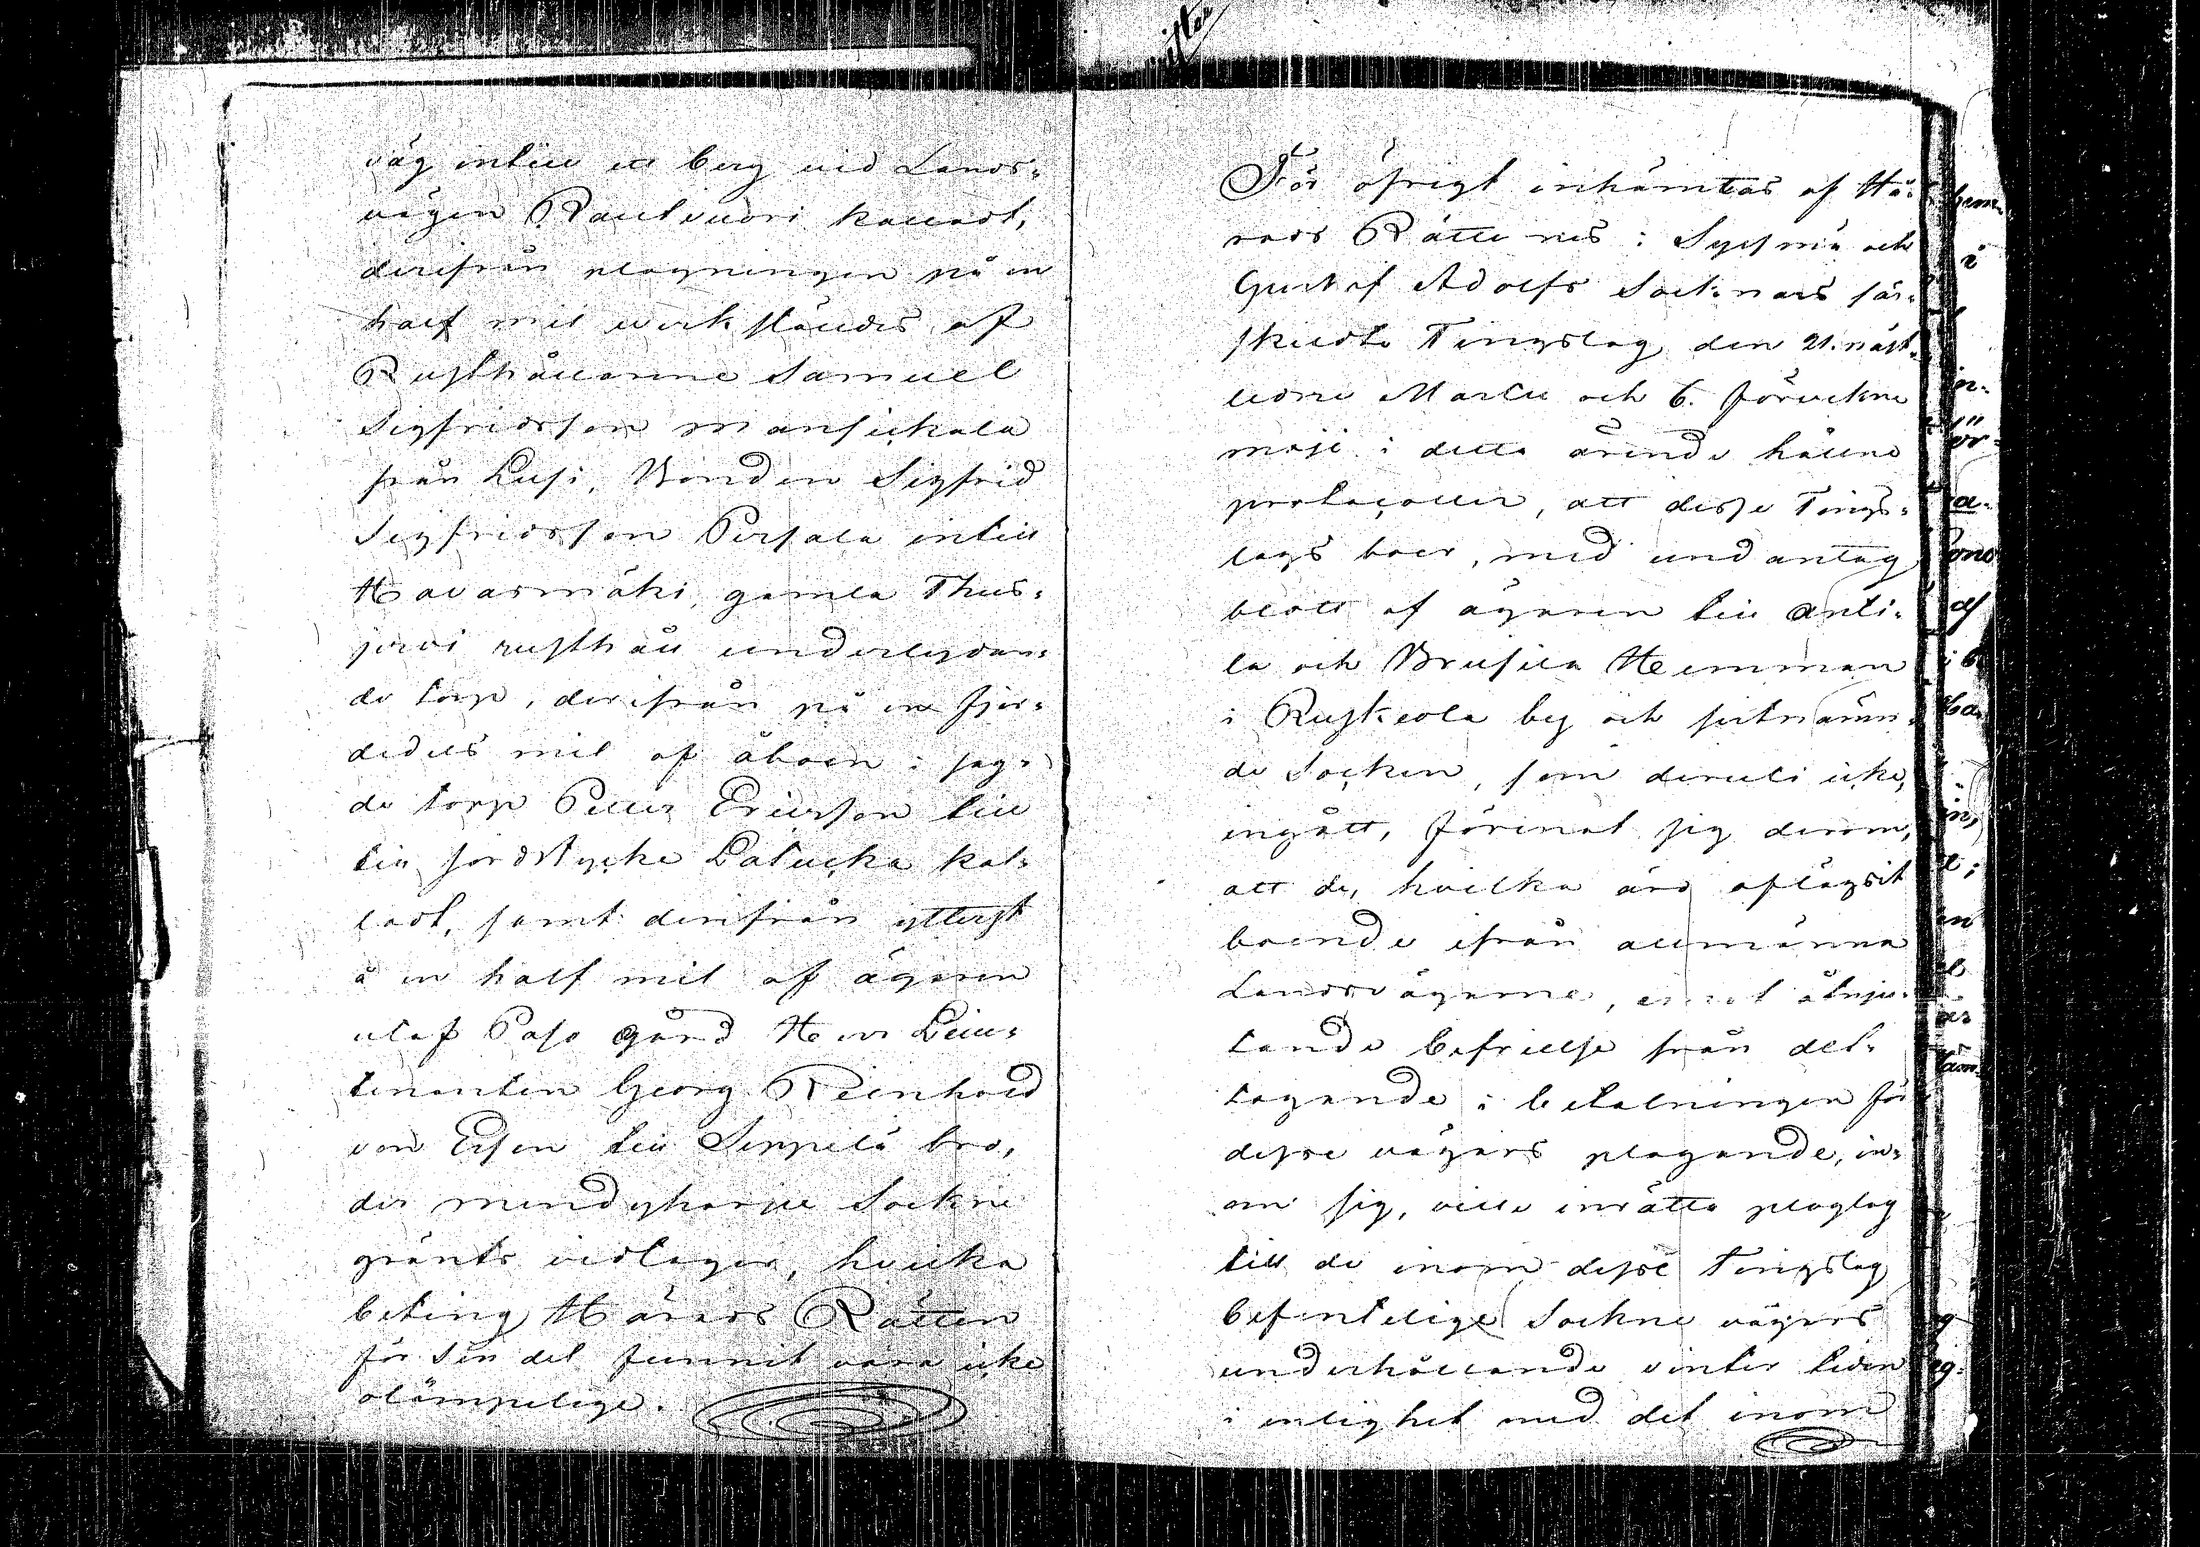 väg intill ett berg vid Lands-
vägen Rautvuori kalladt,
derifrån plogningen på en
half mil verkställdes af
Rusthållarne Samuel
Sigfridsson Mansickala
från Lusi, Bonden Sigfrid
Sigfridsson Persala intill
Havasmäki, gamla Thus-
jervi rusthåll underlydan-
de torp, derifrån på en fjer-
dedels mil af åboen i sag-
de torp Petter Ericsson till
ett jordstycke Latucka kal-
ladt, samt derifrån ytterst
å en half mil af ägaren
utaf Paso gård Herr Lieu-
tenanten Georg Reinhold
von Essen till Seppelä bro,
der Mendyharju Sockne
gränts vidtager, hvilka
beting Härads Rätten
för sin del funnit vara icke
olämpelige.
För öfrigt inhämtas af Hä-
rads Rätternes i Sysmä och
Gustaf Adolfs Socknars sär-
skildte Tingslag den 21. näst-
ledne Martii och 6. förvekne
Maji i detta ärende hållne
protocoller, att desse Tings-
lags boer, med undantag
blott af ägaren till Anti-
la och Brusila Hemman
i Ruskeala by och sistnämn-
de Socken, som deruti icke
ingått, förenat sig derom,
att de, hvilka äro aflägsit
boende ifrån allmänna
Landsvägarne, åtnju-
tande befrielse från del-
tagande i betalningen för
desse vägars plogande, in-
om sig, ville inrätta ploglag
till de inom desse Tingslag
befintelige Sockne vägars
underhållande vinter tiden
i enlighet med det inom